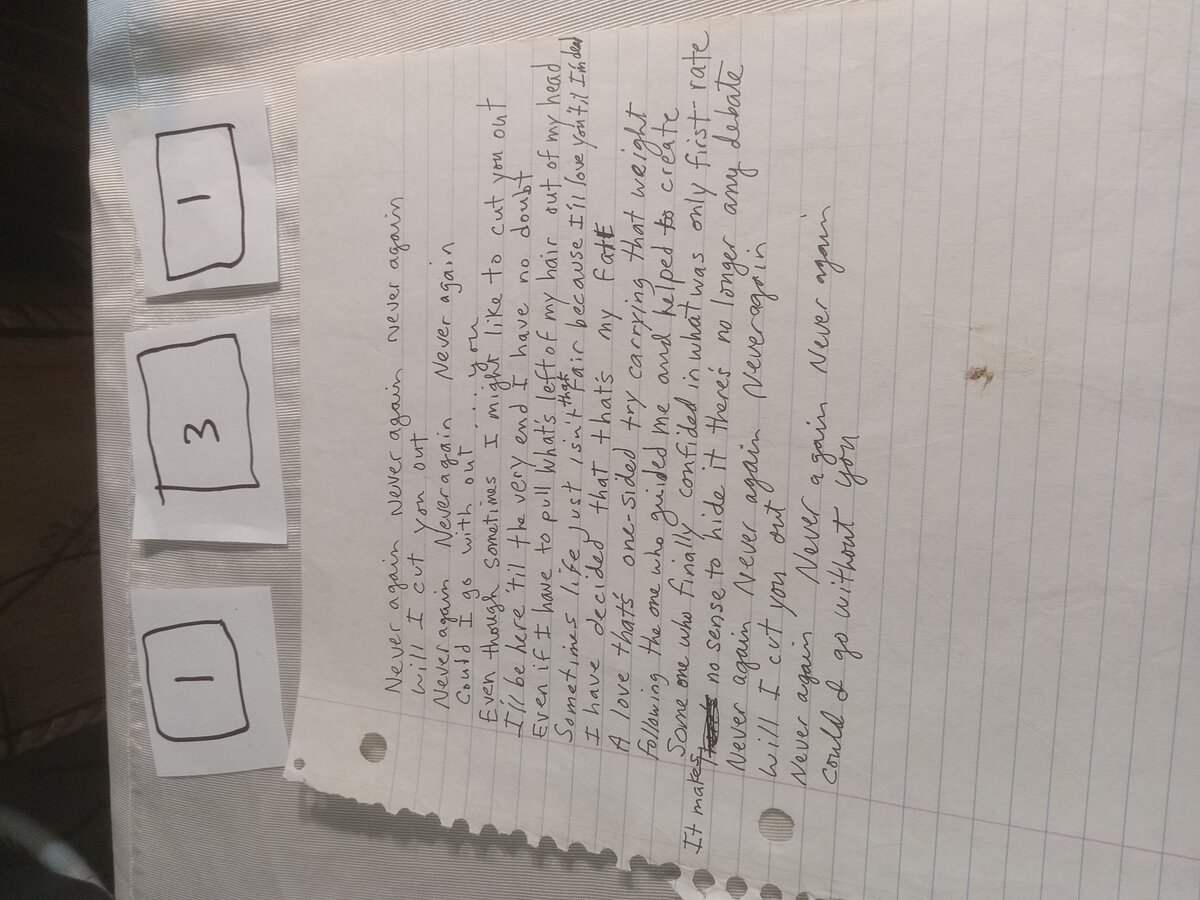 1 3 1
Never again Never again Never again never again
will I cut you out
Never again Never again Never again
Could I go with out ... you
Even though sometimes I might like to cut you out
I'll be here 'till the very end I have no doubt
Even if I have to pull what's left of my hair out of my head
Sometimes life just isn't that Fair because I'll love you 'til I'm dead
I have decided that that's my Fate
A love that's one-sided try carrying that weight
Following the one who guided me and helped to create
Some one who finally confided in what was only first-rate
It makes no sense to hide it there's no longer any debate
Never again Never again Never again Never again
will I cut you out
Never again, Never again Never again Never again
could I go without you